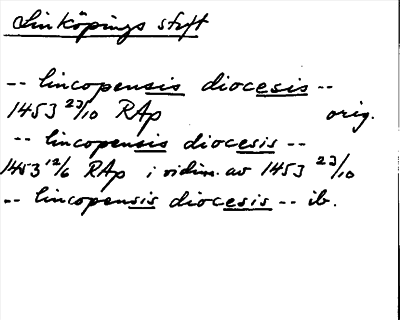 Linköpings stift
-- lincopensis diocesis --
1453 23/10 RAp orig.
-- lincopensis diocesis --
1453 12/6 RAp i vidim. av 1453 23/10
-- lincopensis diocesis -- ib.